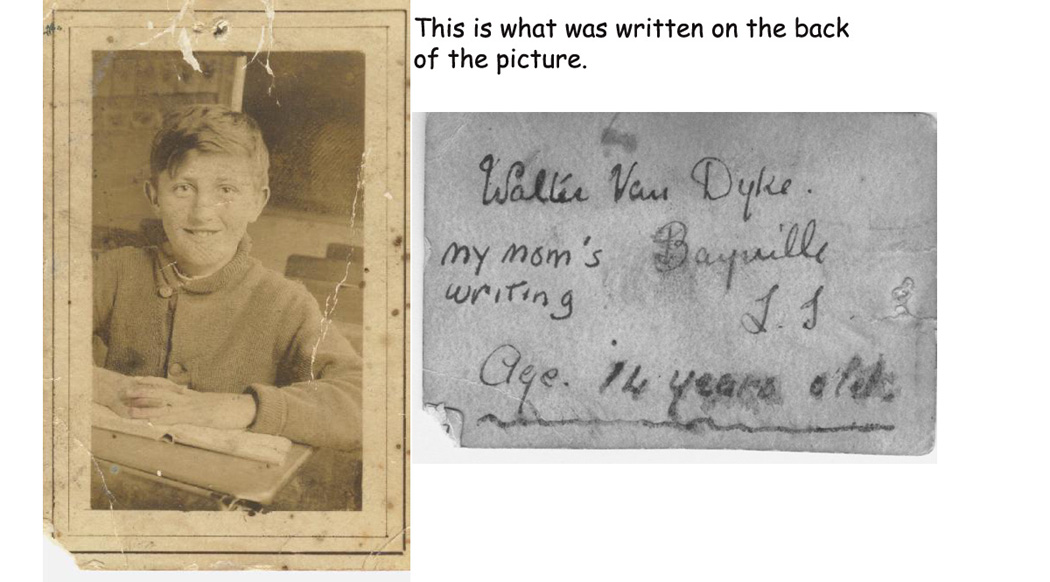 This is what was written on the back
of the picture.
Walter Van Dyke.
my mom's
writing
Bayville
L. I
Age. 14 years old.